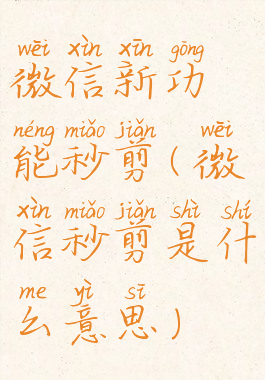 wēi xìn xīn gōng
微信新功
néng miǎo jiǎn wēi
能秒剪(微
xìn miǎo jiǎn shì shí
信秒剪是什
me yì sī
么意思)